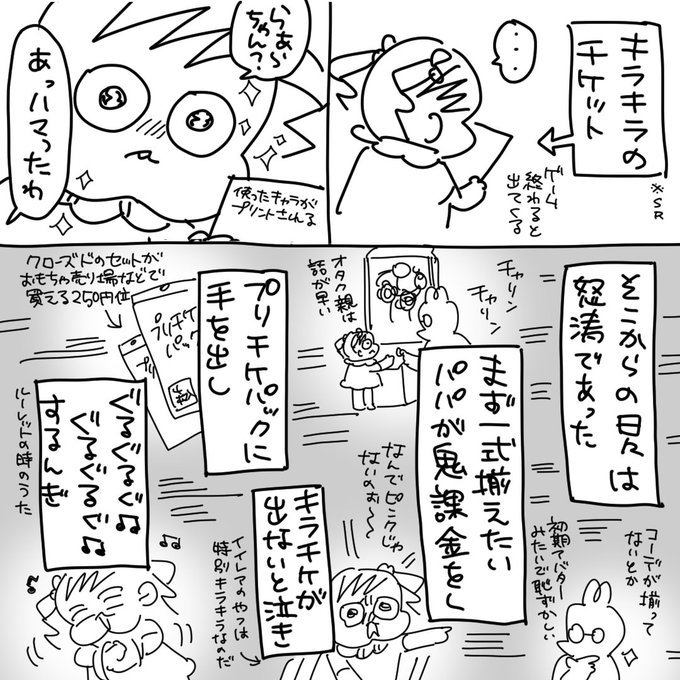 キラキラの
チケット
※SR
ゲーム
終わると
出てくる
…
らぁら
ちゃん?
あっハマったわ
使ったキャラが
プリントされる
そこからの日々は
怒涛であった
チャリン
チャリン
オタク親は
話が早い
まず一式揃えたい
パパが鬼課金をし
コーデが揃って
ないとか
初期アバター
みたいで恥ずかしい
クローズドのセットが
おもちゃ売り場などで
買える250円位
プリチケ
パック
プリチケパックに
手を出し
なんでピンクじゃ
ないのぉ〜
キラチケが
出ないと泣き
イイレアのやつは
特別キラキラなのだ
ぐるぐるぐ♪
ぐるぐるぐ♪
するんぎ
ルーレットの時のうた